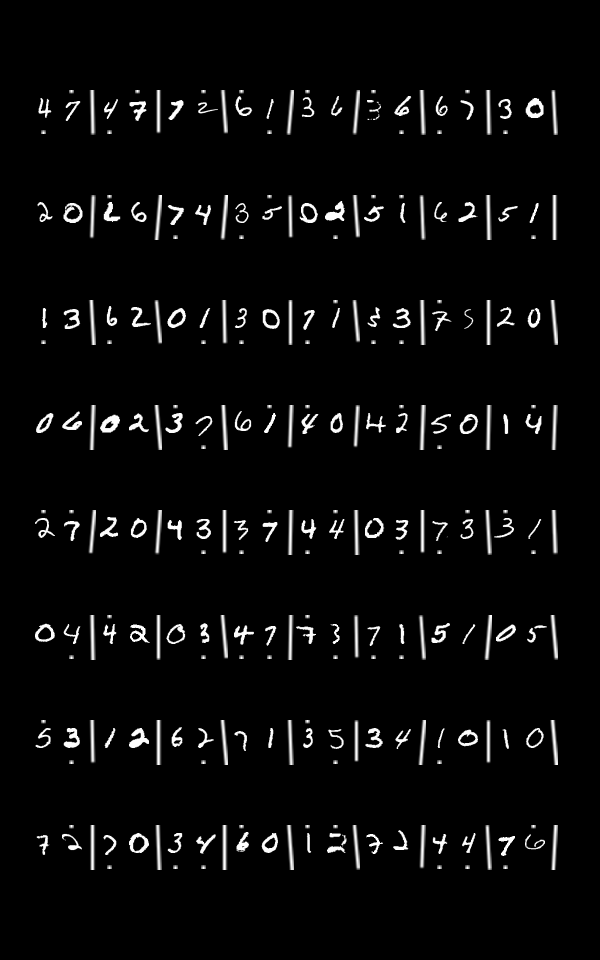 4 7 | 4 7 | 7 2 | 6 1 | 3 6 | 3 6 | 6 7 | 3 0 |
2 0 | 2 6 | 7 4 | 3 5 | 0 2 | 5 1 | 6 2 | 5 1 |
1 3 | 6 2 | 0 1 | 3 0 | 7 1 | 5 3 | 7 5 | 2 0 |
0 6 | 0 2 | 3 7 | 6 1 | 4 0 | 4 2 | 5 0 | 1 4 |
2 7 | 2 0 | 4 3 | 3 7 | 4 4 | 0 3 | 7 3 | 3 1 |
0 4 | 4 2 | 0 3 | 4 7 | 7 3 | 7 1 | 5 1 | 0 5 |
5 3 | 1 2 | 6 2 | 7 1 | 3 5 | 3 4 | 1 0 | 1 0 |
7 2 | 7 0 | 3 4 | 6 0 | 1 2 | 7 2 | 4 4 | 7 6 |